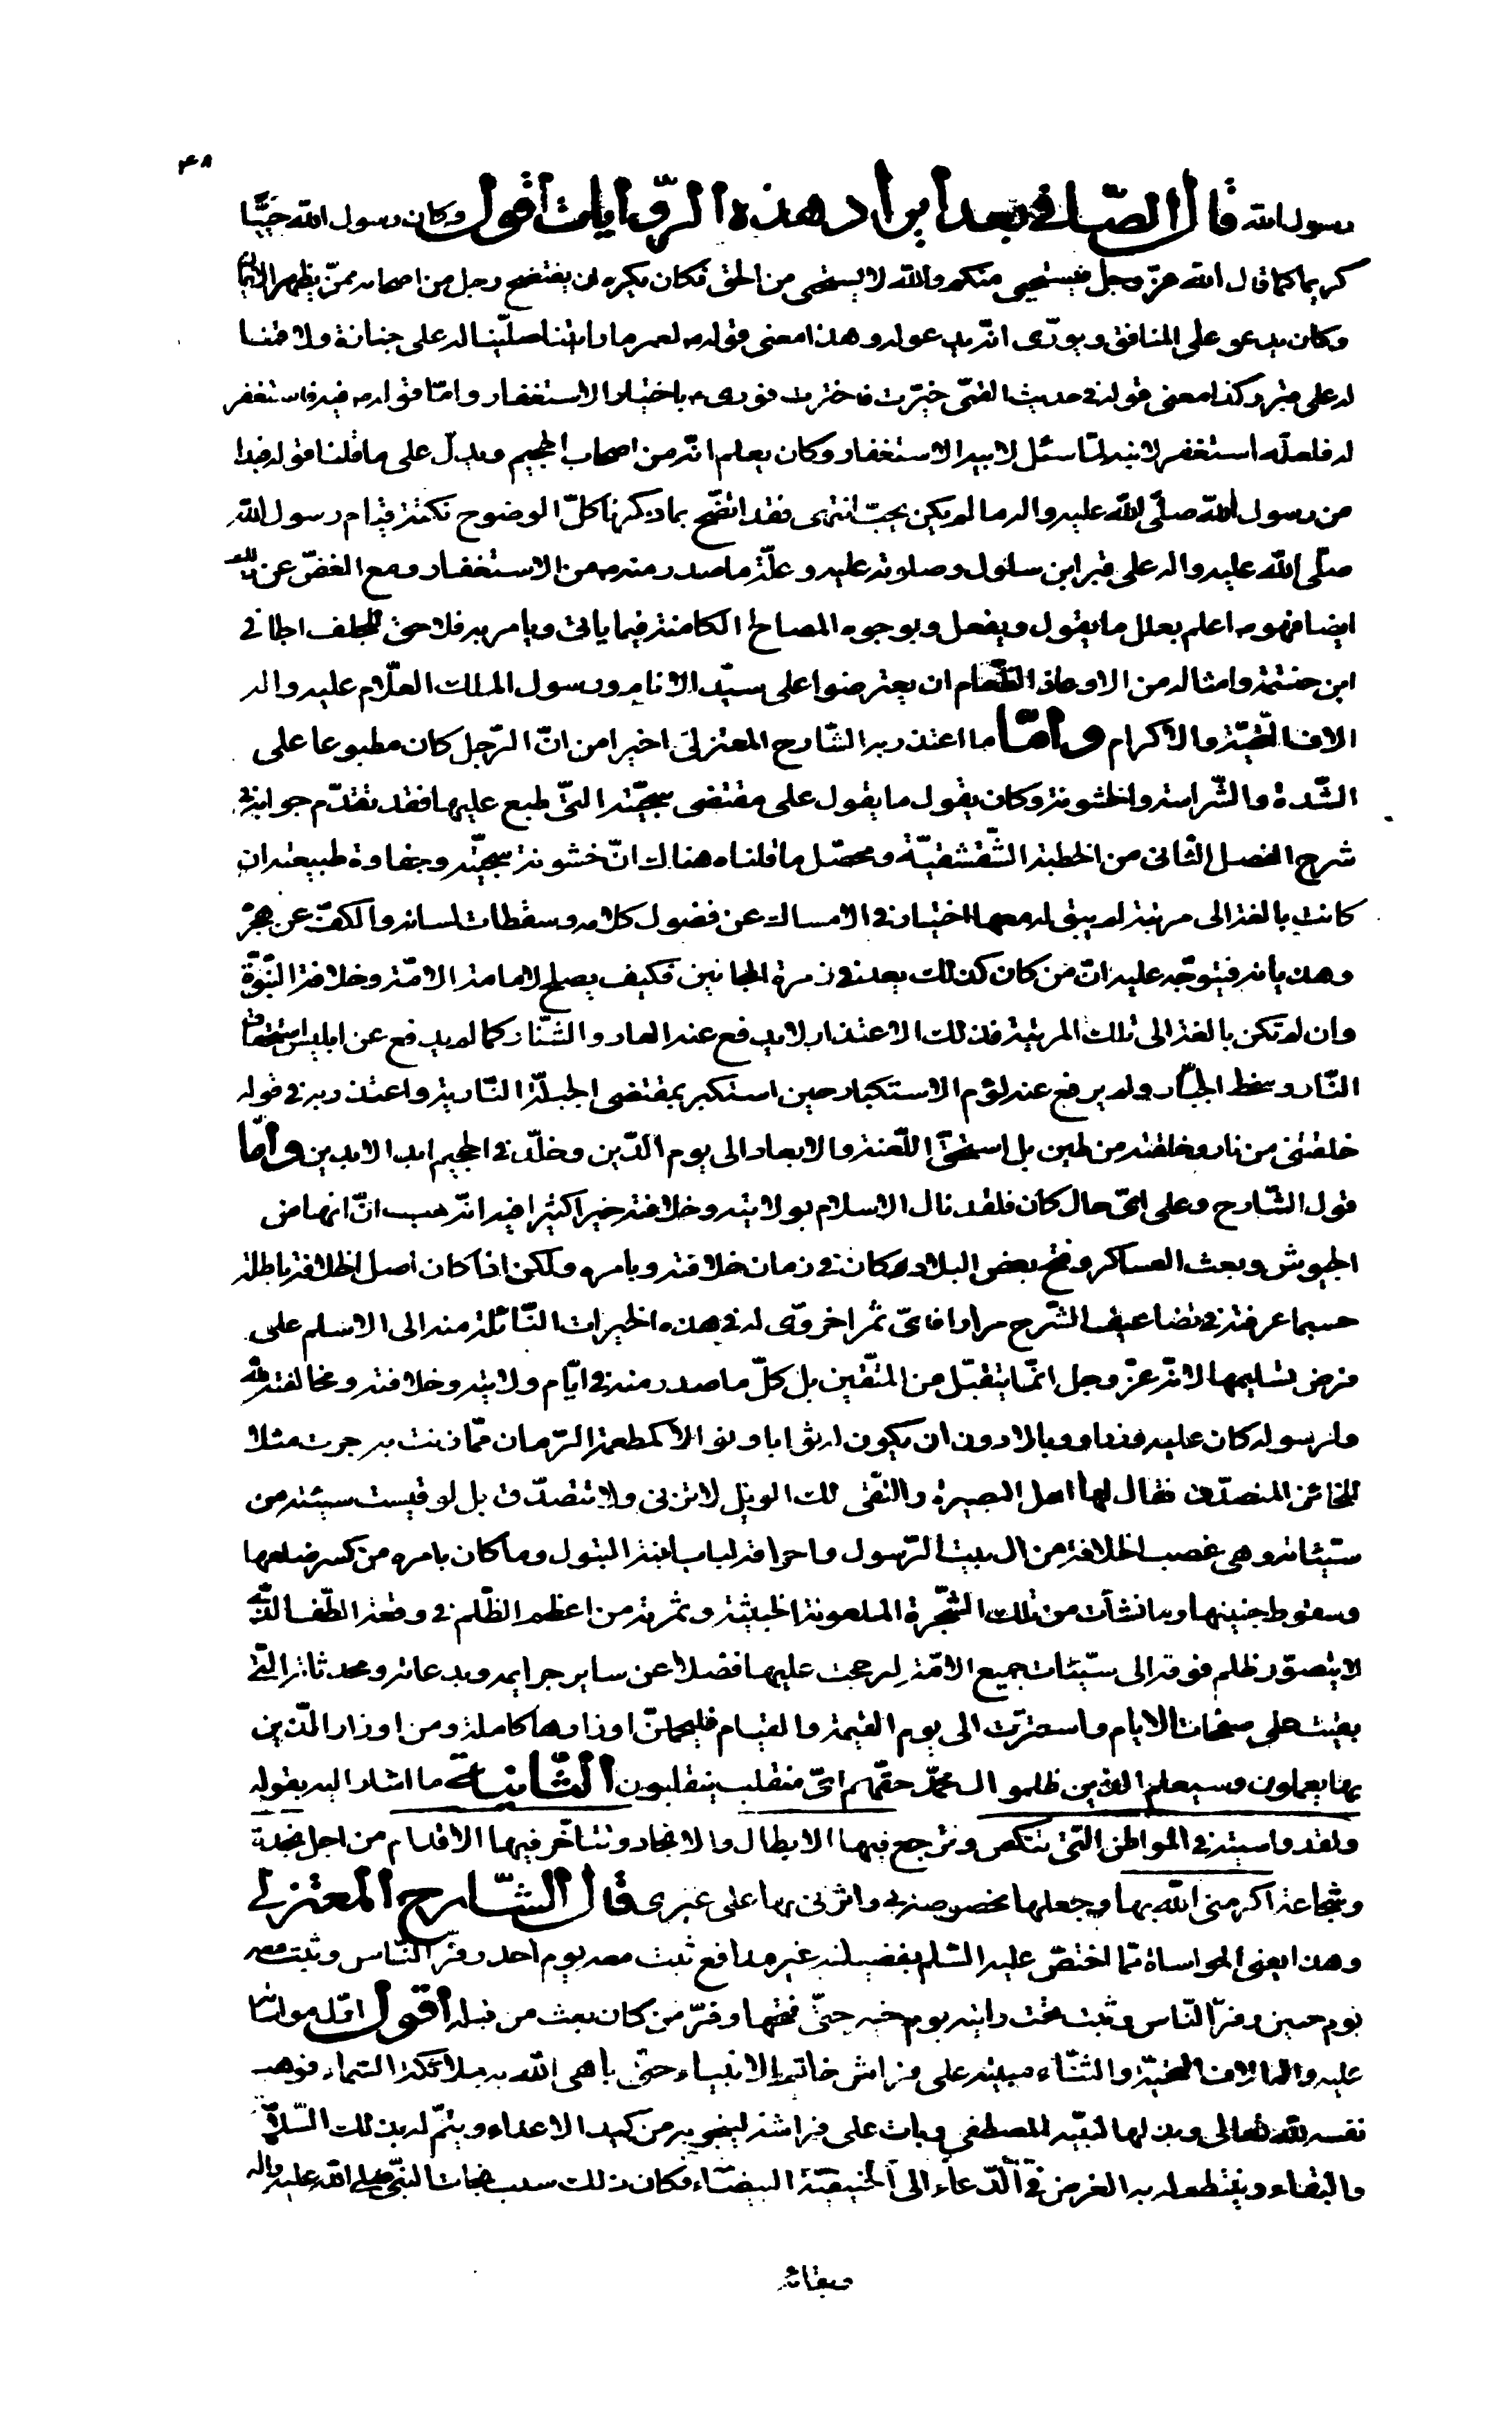 ٤٨
رسول الله قال الصافي بعد ايراد هذه الروايات اقول وكان رسول الله حييّا
كريما كما قال الله عزّ وجل فيستحيى منكم والله لا يستحيى من الحق فكان يكره ان يفتضح رجل من اصحابه ممّن يظهر الايمان
وكان يدعو على المنافق ويورّى انّه يدعو له وهذا معنى قوله لعمر ما رايتنا صلّينا له على جنازة ولا قمنا
له على قبر وكذا معنى قوله في حديث القمّى خيّرت فاخترت فورى باختيار الاستغفار وامّا قوله فيه فاستغفر
له فلعلّه استغفر لابنه لمّا سئل لابيه الاستغفار وكان يعلم انّه من اصحاب الجحيم ويدلّ على ما قلنا قوله فبدا
من رسول الله صلّى الله عليه واله ما لم يكن يحبّ انتهى فقد اتّضح بما ذكرنا كلّ الوضوح نكتة قيام رسول الله
صلّى الله عليه واله على قبر ابن سلول وصلوته عليه وعلّة ما صدر منه من الاستغفار ومع الغضّ عن ذلك
ايضا فهو اعلم بعلل ما يقول ويفعل وبوجوه المصالح الكامنة فيما ياتى ويامر به فلا حق للجلف الجافى
ابن حنتمة وامثاله من الاوغاد الطّغام ان يعترضوا على سيّد الانام ورسول الملك العلّام عليه واله
الاف التّحيّة والاكرام وامّا ما اعتذر به الشّارح المعتزلى اخيرا من انّ الرّجل كان مطبوعا على
الشّدة والشّراسة والخشونة وكان يقول ما يقول على مقتضى سجيّته الّتى طبع عليها فقد تقدّم جوابه في
شرح الفصل الثّانى من الخطبة الشّقشقيّة ومحصّل ما قلناه هناك انّ خشونة سجيّته وجفاوة طبيعته ان
كانت بالغة الى مرتبة لم يبق له معها اختيار في الامساك عن فضول كلامه وسقطات لسانه والكفّ عن هجره
وهذيانه فيتوجّه عليه انّ من كان كذلك يعد في زمرة المجانين فكيف يصلح لامامة الامّة وخلافة النّبوّة
وان لم تكن بالغة الى تلك المرتبة فذلك الاعتذار لا يدفع عنه العار والشّنار كما لم يدفع عن ابليس استحقاق
النّار وسخط الجبّار ولم يرفع عنه لؤم الاستكبار حين استكبر بمقتضى الجبلّة النّارية واعتذر به في قوله
خلقتنى من نار وخلقته من طين بل استحقّ اللّعنة والابعاد الى يوم الدّين وخلّد في الجحيم ابد الابدين وامّا
قول الشّارح وعلى اىّ حال كان فلقد نال الاسلام بولايته وخلافته خيرا كثيرا فيه انّه هب انّ انهاض
الجيوش وبعث العساكر وفتح بعض البلاد كان في زمان خلافته وبامره ولكن اذا كان اصل الخلافة باطلة
حسبما عرفته في تضاعيف الشّرح مرارا فاىّ ثمر اخروّى له في هذه الخيرات النّائلة منه الى الاسلم على
فرض تسليمها لانّه عزّ وجل انمّا يتقبّل من المتّقين بل كلّ ما صدر منه في ايّام ولايته وخلافته ومخالفته لله
ولرسوله كان عليه وزرا ووبالا دون ان يكون اجرا وثوابا ونوالا كمطعمة الرّمان ممّا زنت به جرت مثلا
للخائن المتصدّق فقال لها اهل البصيرة والتّقى لك الويل لا تزنى ولا تتصدّق بل لو قيست سيئة من
سيّئاته وهى غصب الخلافة من ال بيت الرّسول واحراقه لباب ابنة البتول وما كان بامره من كسر ضلعها
وسقوط جنينها وما نشات من تلك الشّجرة الملعونة الخبيثة وثمرته من اعظم الظّلم في وقعة الطّف الّذى
لا يتصوّر ظلم فوقه الى سيّئات جميع الامّة لرجحت عليها فضلا عن ساير جرايمه وبدعاته ومحدثاته الّتى
بقيت على صفحات الايام واستمرّت الى يوم القيمة والقيام فليحملنّ اوزارها كاملة ومن اوزار الّذين
بها يعملون وسيعلم الّذين ظلموا ال محمّد حقّهم اىّ منقلب ينقلبون الثّانية ما اشار اليه بقوله
ولقد واسيته في المواطن الّتى تنكص وترجع فيها الابطال والانجاد وتتاخّر فيها الاقدام من اجل نجدة
وشجاعة اكرمنى الله بها وجعلها مخصوصة بى واثرنى بها على غيرى قال الشّارح المعتزلى
وهذا يعنى المواساة ممّا اختصّ عليه السّلم بفضيلته غير مدافع ثبت معه يوم احد وفرّ النّاس وثبت معه
يوم حنين وفرّ النّاس وثبت تحت رايته يوم خيبر حتّى فتحها وفرّ من كان بعث من قبله اقول اوّل مواساته
عليه والهما الاف التّحيّة والثّناء مبيته على فراش خاتم الانبياء حتّى باهى الله به ملائكة السّماء فوهب
نفسه لله تعالى وبذلها لنبيّه المصطفى وبات على فراشه لينجو به من كيد الاعداء ويتمّ له بذلك السّلامة
والبقاء وينتظم له به الغرض في الدّعاء الى الحنيفيّة البيضاء فكان ذلك سبب نجات النّبى صلى الله عليه واله
وبقائه